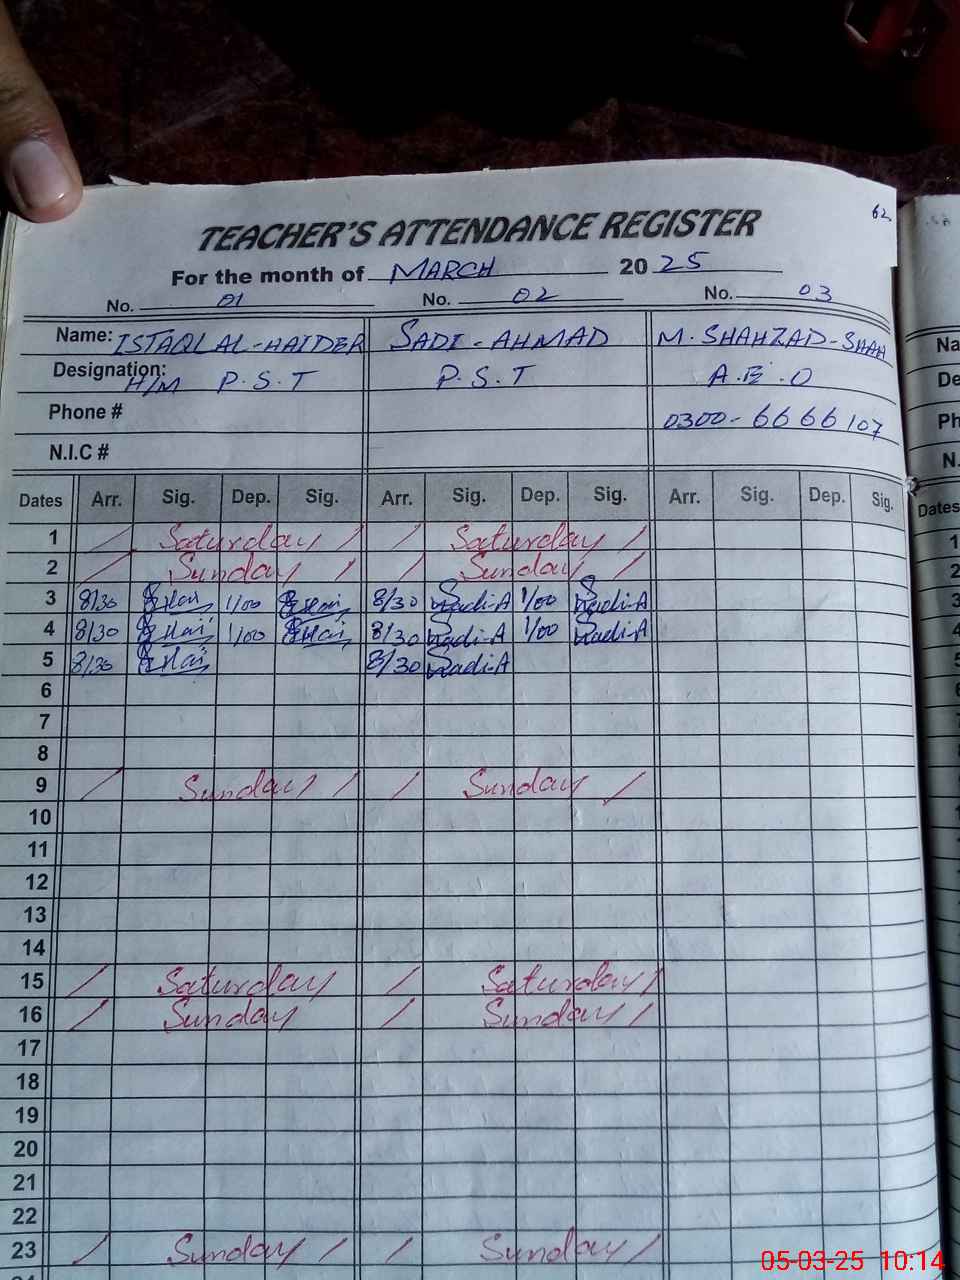 62
TEACHER'S ATTENDANCE REGISTER
For the month of MARCH 2025
No. 01 No. 02 No. 03
Name: ISTAQLAL-HAIDER SADI-AHMAD M.SHAHZAD-SHAH
Designation: H/M P.S.T P.S.T A.E.O
Phone # 0300-6666107
N.I.C #
Dates Arr. Sig. Dep. Sig. Arr. Sig. Dep. Sig. Arr. Sig. Dep. Sig.
1 / Saturday / / Saturday /
2 / Sunday / / Sunday /
3 8/30 1/00 8/30 Sadi-A 1/00 Sadi-A
4 8/30 1/00 8/30 Sadi-A 1/00 Sadi-A
5 8/30 8/30 Sadi-A
6
7
8
9 / Sunday / / / Sunday /
10
11
12
13
14
15 / Saturday / Saturday /
16 / Sunday / Sunday /
17
18
19
20
21
22
23 / Sunday / / Sunday /
Na
De
Ph
N.
Dates
1
2
3
4
5
6
05-03-25 10:14